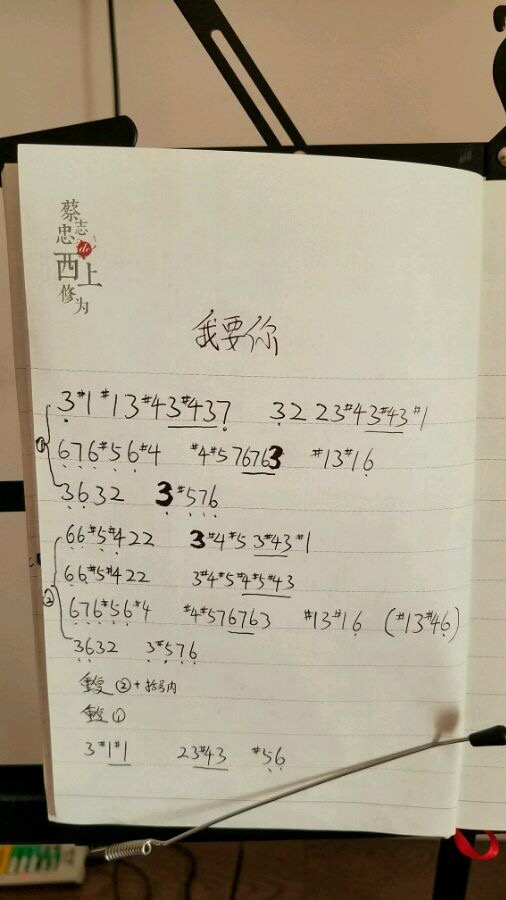 蔡志忠
西上
修为
de
我要你
3#1 #13#43#437 32 23#43#43#1
① 676#56#4 #4#576763 #13#16
3632 3#576
66#5#422 3#4#53#43#1
66#5#422 3#4#5#4#5#43
② 676#56#4 #4#576763 #13#16 (#13#46)
3632 3#576
重复②+括号内
重复①
3#1#1 23#43 #56